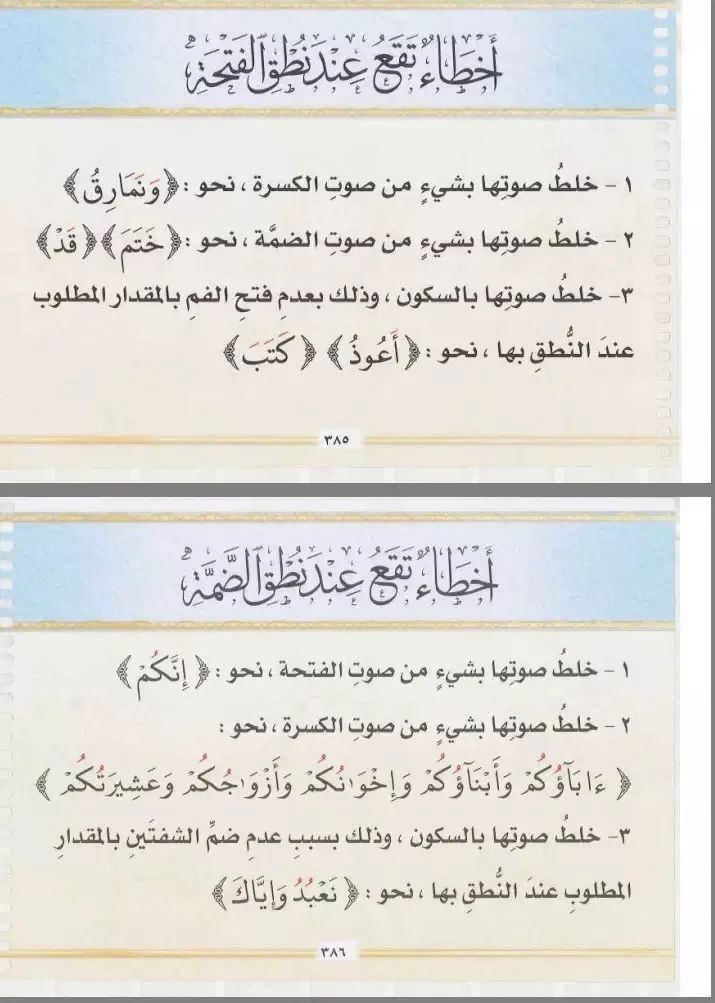 أَخْطَاءٌ تَقَعُ عِنْدَ نُطْقِ الفَتْحَةِ
١ - خلطُ صوتِها بشيءٍ من صوتِ الكسرة ، نحو : ﴿وَنَمَارِقُ﴾
٢ - خلطُ صوتِها بشيءٍ من صوتِ الضمَّة ، نحو : ﴿خَتَمَ﴾ ﴿قَدْ﴾
٣- خلطُ صوتِها بالسكون ، وذلك بعدمِ فتحِ الفمِ بالمقدار المطلوب
عندَ النُّطقِ بها ، نحو : ﴿أَعُوذُ﴾ ﴿كَتَبَ﴾
٣٨٥
أَخْطَاءٌ تَقَعُ عِنْدَ نُطْقِ الضَّمَّةِ
١ - خلطُ صوتِها بشيءٍ من صوتِ الفتحة ، نحو : ﴿إِنَّكُمْ﴾
٢ - خلطُ صوتِها بشيءٍ من صوتِ الكسرة ، نحو :
﴿ءَابَآؤُكُمْ وَأَبْنَآؤُكُمْ وَإِخْوَٰنُكُمْ وَأَزْوَٰجُكُمْ وَعَشِيرَتُكُمْ﴾
٣- خلطُ صوتِها بالسكون ، وذلك بسببِ عدمِ ضمِّ الشفتَينِ بالمقدارِ
المطلوبِ عندَ النُّطقِ بها ، نحو : ﴿نَعْبُدُ وَإِيَّاكَ﴾
٣٨٦